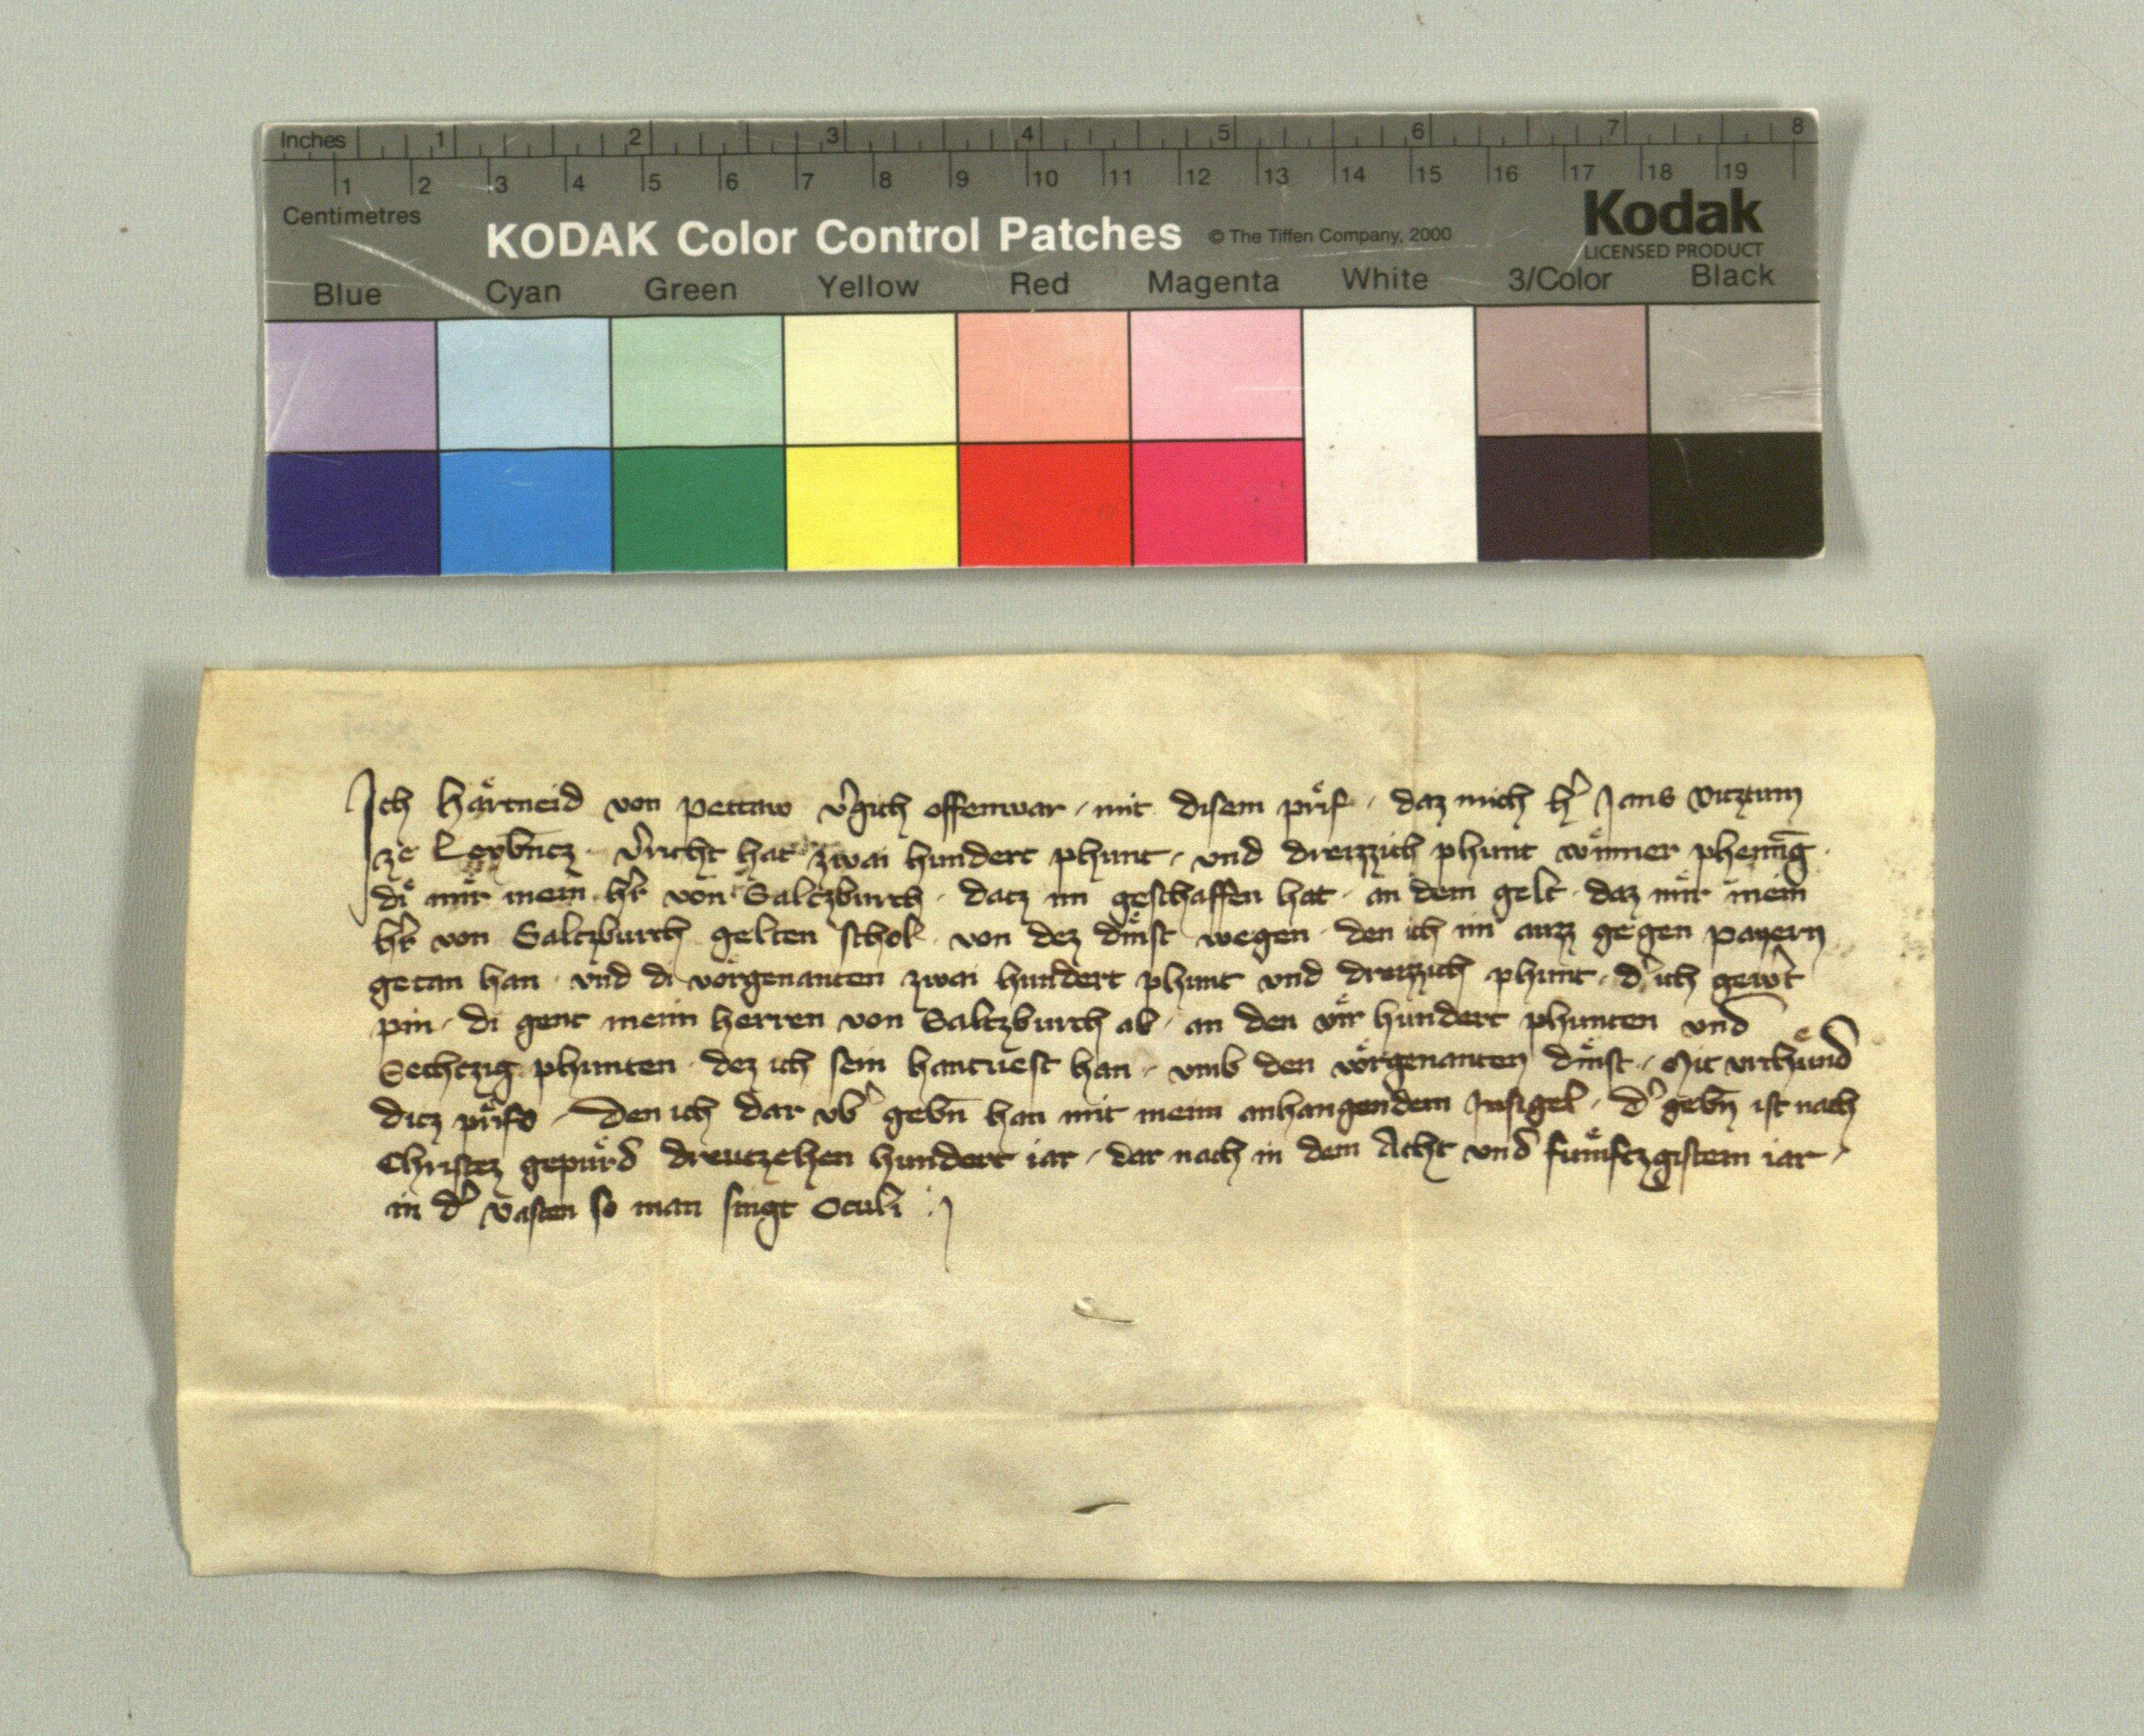 Inches 1 2 3 4 5 6 7 8
1 2 3 4 5 6 7 8 9 10 11 12 13 14 15 16 17 18 19
Centimetres
KODAK Color Control Patches © The Tiffen Company, 2000 Kodak
LICENSED PRODUCT
Blue Cyan Green Yellow Red Magenta White 3/Color Black
Ich Haͤrtneid von pettaw v̉gich offenwar / mit disem prif / daz mich h̉ Jans Vitztum
ze Leybn̄cz v̉richt hat zwai hundert phunt / vnd dreizzich phunt winner phennīg
di mir mein hr̉ von Saltzburch datz im geschaffen hat an dem gelt daz mir mein
hr̉ von Saltzburch gelten schol von dez dinst wegen den ich im auzz gegen payern
getan han vnd di vorgenanten zwai hundert phunt vnd dreizzich phunt d̉ ich gew̉t
pin / di gent meim herren von Saltzburch ab / an den vir hundert phunten vnd
Sechtzig phunten dez ich sein hantuest han / vmb den vorgenanten dinst / Mit vrchuͤnd
ditz prifs / Den ich dar vb̉ gebn̄ han mit meim anhangendem Insigel / d̉ gebn̄ ist nach
Christez gepuͤrd dreutzehen hundert iar / dar nach in dem Acht vnd fumftzgistem iar /
in d̉ Vasten so man singt Oculi